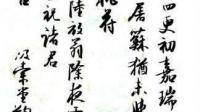 四更初嘉瑞
屠蘇猶未舉
桃符
陸放翁除夜
祝諸君